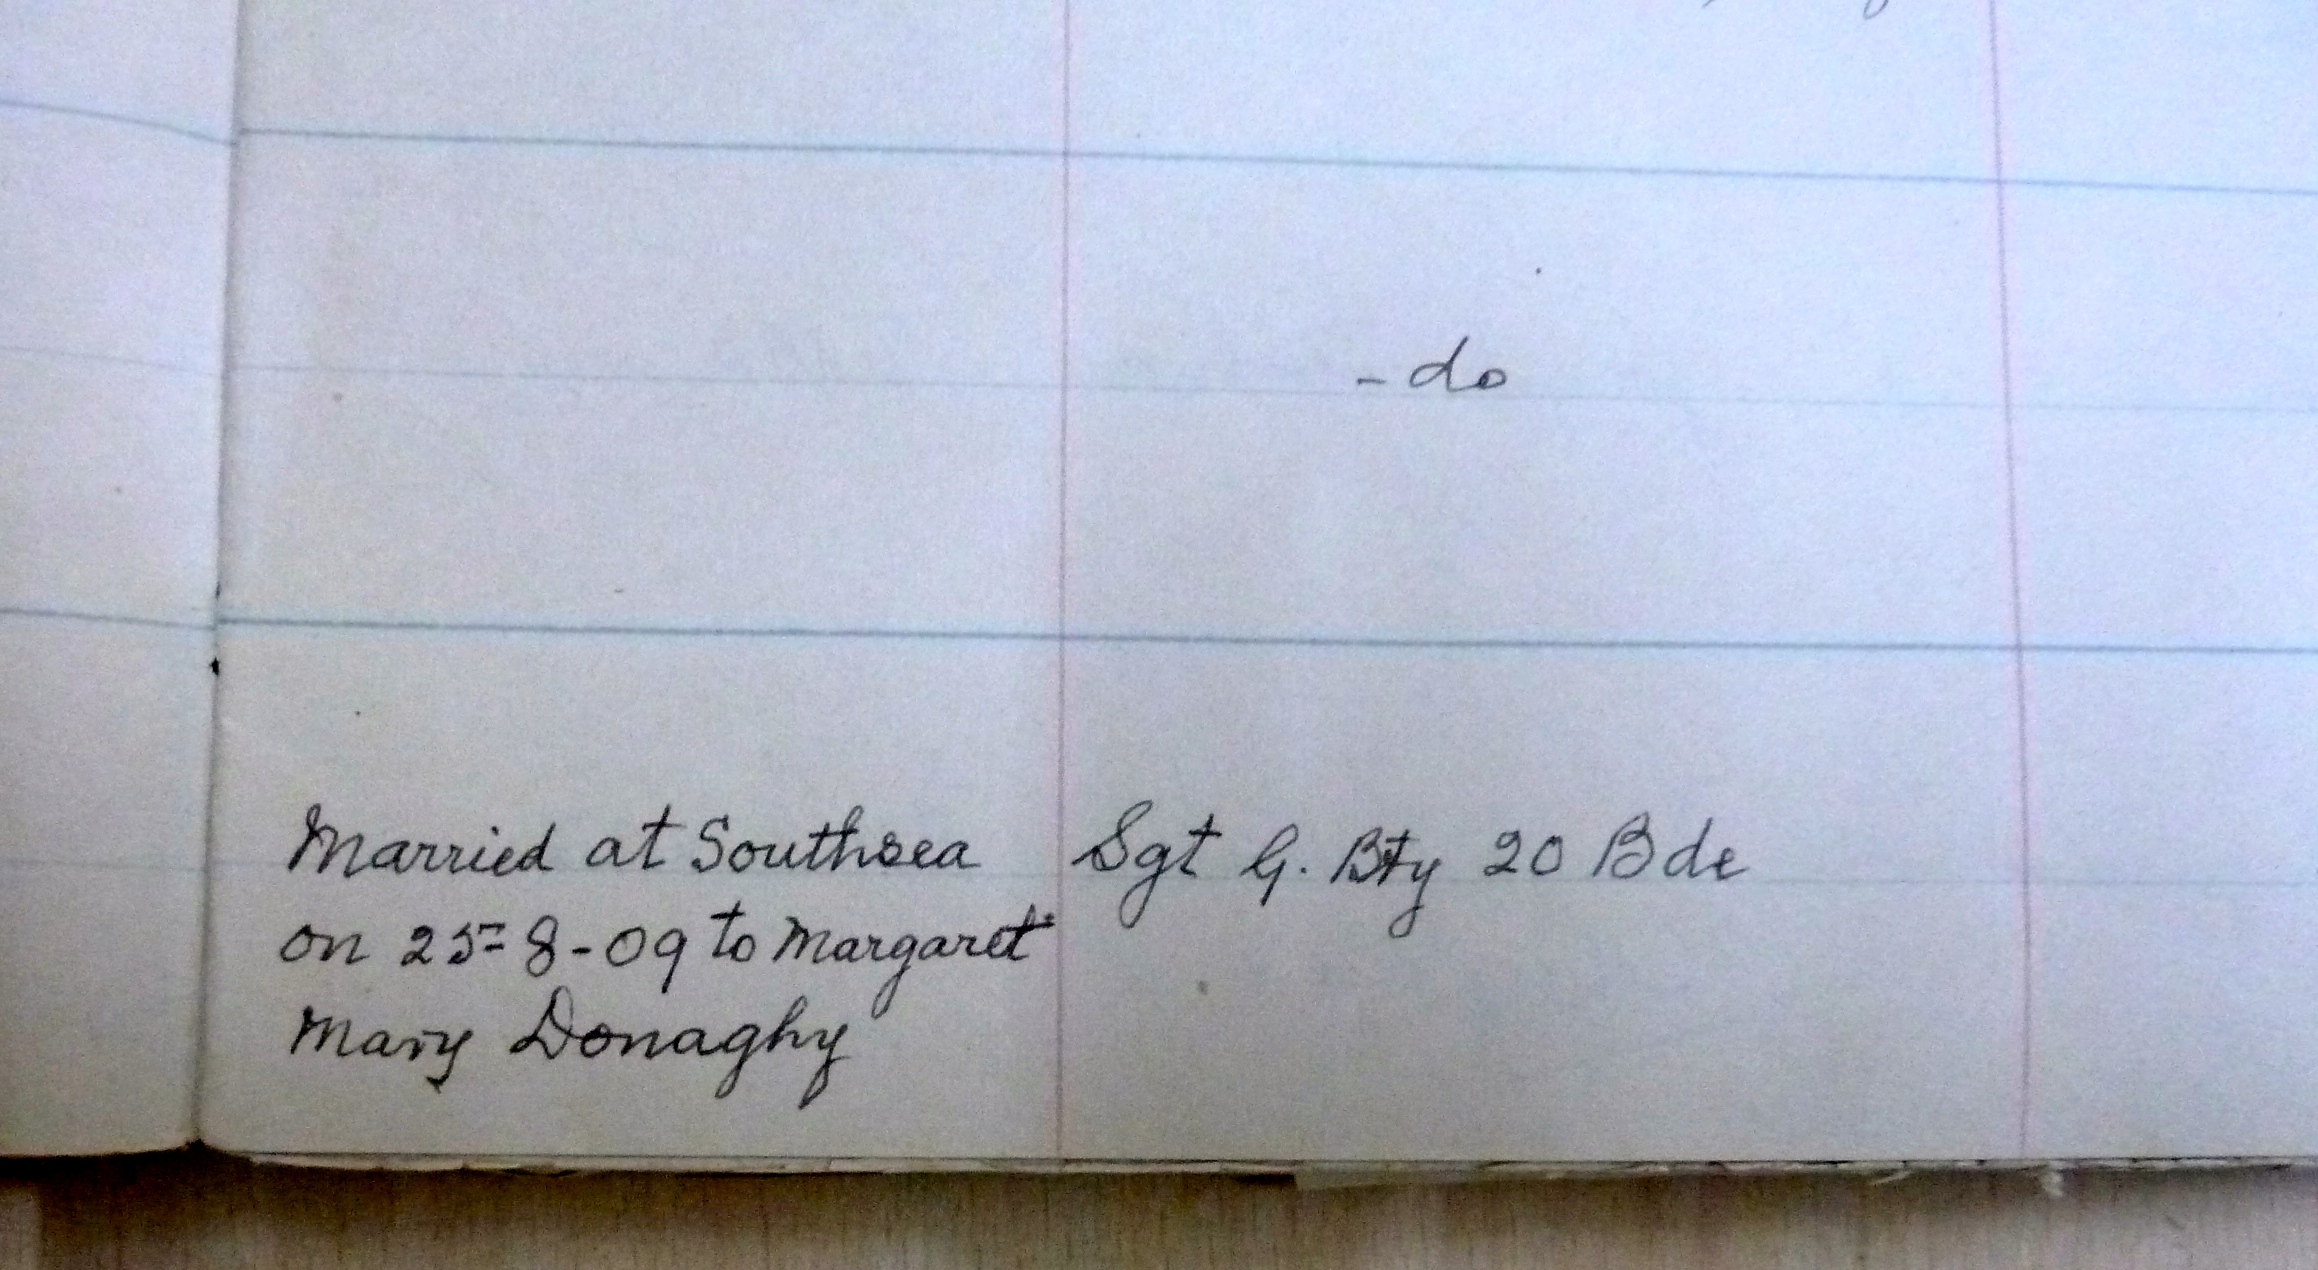 - do
Married at Southsea
on 25-8-09 to Margaret
Mary Donaghy
Sgt G. Bty 20 Bde